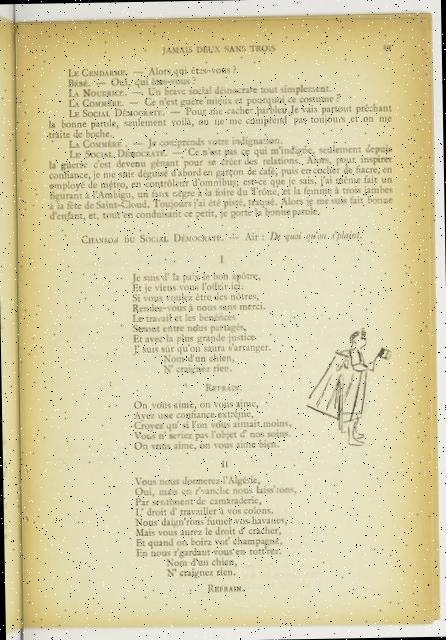 JAMAIS DEUX SANS TROIS
LE GENDARME. — Alors qui êtes-vous ?
BÉBÉ. — Oui, qui êtes-vous ?
LA NOURRICE. — Un brave social démocrate tout simplement.
LA COMMÈRE. — Ce n'est guère mieux et pourquoi ce costume ?
LE SOCIAL DÉMOCRATE. — Pour me cacher parbleu. Je vais partout prêchant
la bonne parole, seulement voilà, on ne me comprend pas toujours et on me
traite de boche.
LA COMMÈRE. — Je comprends votre indignation.
LE SOCIAL DÉMOCRATE. — Ce n'est pas ce qui m'indigne, seulement depuis
la guerre c'est devenu gênant pour se créer des relations. Alors, pour inspirer
confiance, je me suis déguisé d'abord en garçon de café, puis en cocher de fiacre, en
employé de métro, en contrôleur d'omnibus, est-ce que je sais, j'ai même fait un
figurant à l'Ambigu, un faux nègre à la foire du Trône, et la femme à trois jambes
à la fête de Saint-Cloud. Toujours j'ai été pisté, traqué. Alors je me suis fait bonne
d'enfant, et, tout en conduisant ce petit, je porte la bonne parole.
CHANSON DU SOCIAL DÉMOCRATE. — Air : De quoi qu'on s'plaint.
I
Je suis d' la paix le bon apôtre,
Et je viens vous l'offrir ici.
Si vous voulez être des nôtres,
Rendez-vous à nous sans merci.
Le travail et les bénéfices
Seront entre nous partagés,
Et avec la plus grande justice
J' suis sûr qu'on saura s'arranger.
Nom d'un chien,
N' craignez rien.
REFRAIN.
On vous aime, on vous aime,
Ayez une confiance extrême,
Croyez qu' si l'on vous aimait moins,
Vous n' seriez pas l'objet d' nos soins.
On vous aime, on vous aime bien.
II
Vous nous donnerez l'Algérie,
Oui, mais en r'vanche nous laiss'rons,
Par sentiment de camaraderie,
L' droit d' travailler à vos colons.
Nous daign'rons fumer vos havanes,
Mais vous aurez le droit d' cracher,
Et quand on boira vot' champagne,
En nous r'gardant vous en
Nom d'un chien,
N' craignez rien.
REFRAIN.